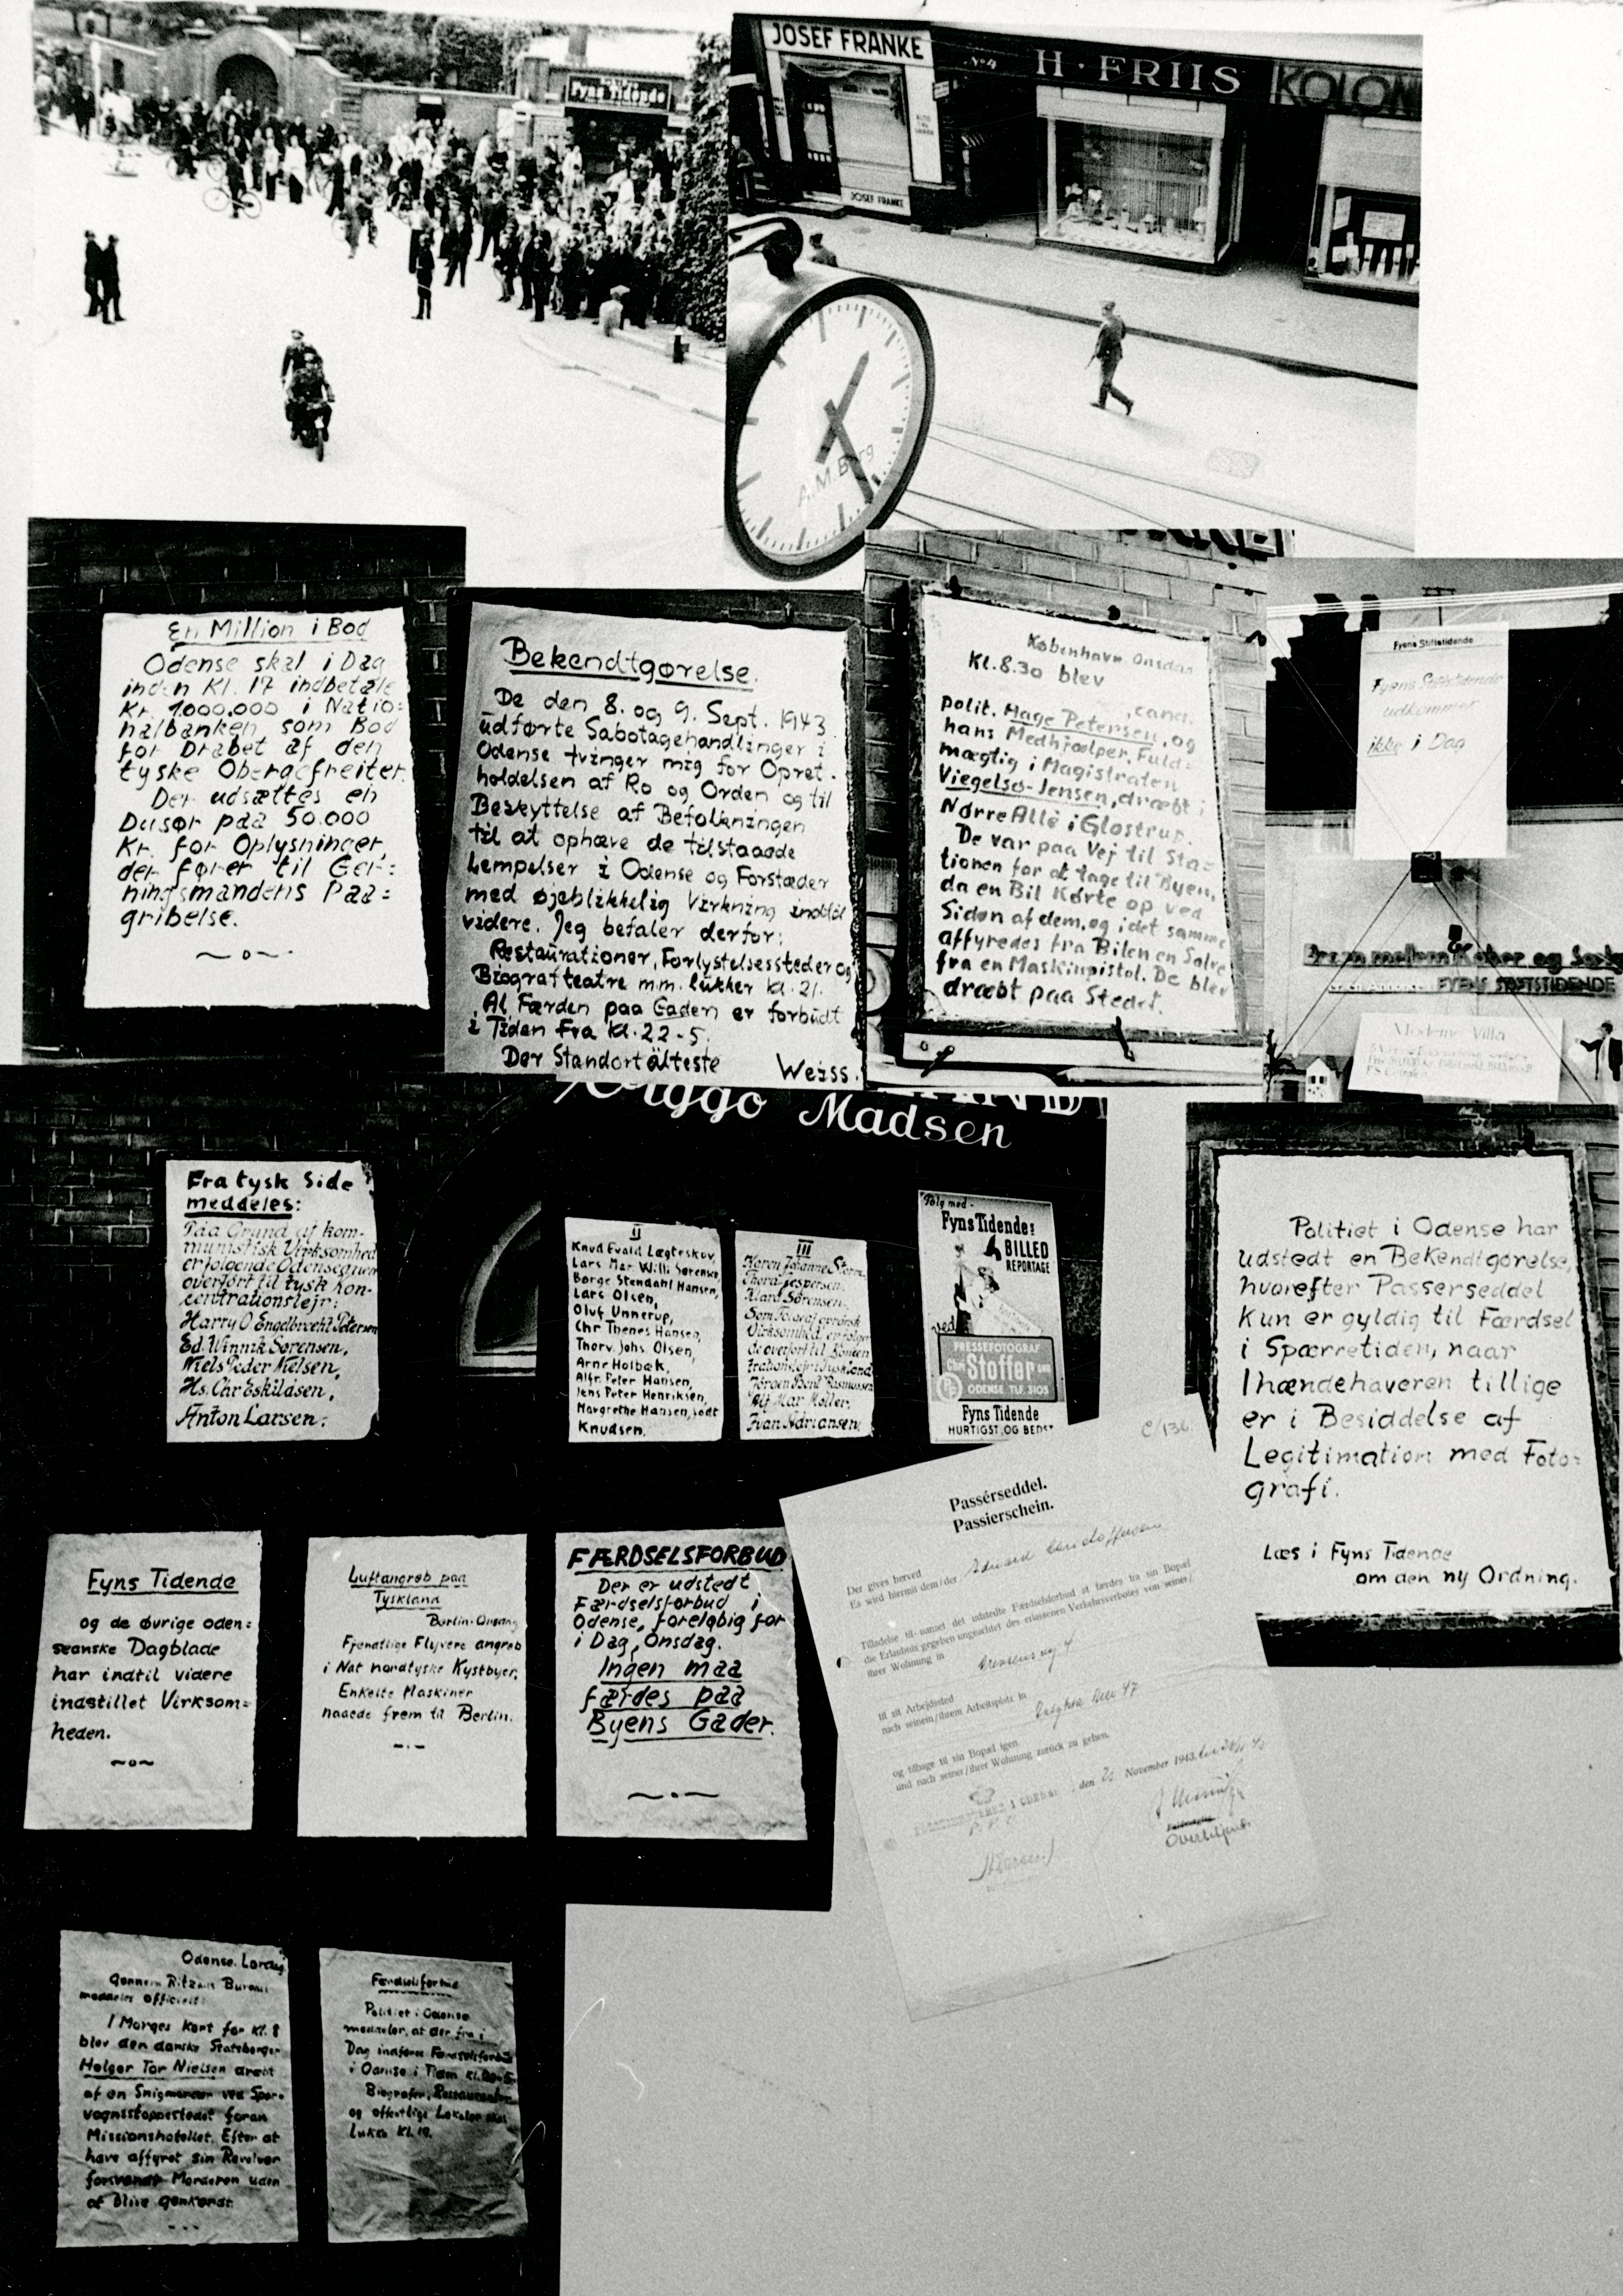 Fyns Tidende
JOSEF FRANKE
No 4
H · FRIIS
KOLON
JOSEF FRANKE
A.M. Borg
En Million i Bod
Odense skal i Dag
inden Kl. 17 indbetale
Kr. 1.000.000 i Natio=
nalbanken, som Bod
for Drabet af den
tyske Obergefreiter.
Der udsættes en
Dusør paa 50.000
Kr. for Oplysninger,
der fører til Ger=
ningsmandens Paa=
gribelse.
Bekendtgørelse.
De den 8. og 9. Sept. 1943
udførte Sabotagehandlinger i
Odense tvinger mig for Opret-
holdelsen af Ro og Orden og til
Beskyttelse af Befolkningen
til at ophæve de tilstaaede
Lempelser i Odense og Forstæder
med øjeblikkelig Virkning indtil
videre. Jeg befaler derfor:
Restaurationer, Forlystelsessteder og
Biografteatre m.m. lukker Kl. 21.
Al Færden paa Gaden er forbudt
i Tiden Fra Kl. 22-5.
Der Standortälteste
Weiss.
København. Onsdag
Kl. 8.30 blev
, cand.
polit. Hage Petersen, og
hans Medhjælper, Fuld=
mægtig i Magistraten
Viegelsø-Jensen, dræbt i
Nørre Allè i Glostrup.
De var paa Vej til Sta=
tionen for at tage til Byen,
da en Bil Kørte op ved
Siden af dem, og i det samme
affyredes fra Bilen en Salve
fra en Maskinpistol. De blev
dræbt paa Stedet.
Fyens Stiftstidende
Fyens Stiftstidende
udkommer
ikke i Dag
og
FYENS STIFTSTIDENDE
Moderne Villa
Viggo Madsen
Fra tysk Side
meddeles:
Paa Grund af kom-
munistisk Virksomhed
er følgende Odenseanere
overført til tysk Kon-
centrationslejr:
Harry O Engelbrecht Petersen
Ed. Winnik Sørensen,
Niels Peder Nielsen,
Hs. Chr Eskildsen,
Anton Larsen.
II
Knud Evald Lægteskov,
Lars Mar. Willi Sørensen,
Børge Stendahl Hansen,
Lars Olsen,
Oluf Unnerup,
Chr Thenes Hansen,
Thorv. Johs. Olsen,
Arne Holbæk,
Alfr. Peter Hansen,
Jens Peter Henriksen,
Margrethe Hansen, født
Knudsen.
III
Karen Johanne Storm,
Thora Jespersen,
Klara Sørensen.
Virksomhed er følgen
de overført til Koncen
trationslejr i Tyskland
Jørgen Bent Rasmussen
Mar Møller,
Ivan Adriansen.
Følg med-
Fyns Tidende's
BILLED
REPORTAGE
ved
PRESSEFOTOGRAF
Chr. Stoffersen
ODENSE TLF. 3105
Fyns Tidende
HURTIGST OG BEDST
Politiet i Odense har
udstedt en Bekendtgørelse,
hvorefter Passerseddel
Kun er gyldig til Færdsel
i Spærretiden, naar
Ihændehaveren tillige
er i Besiddelse af
Legitimation med Foto=
grafi.
Læs i Fyns Tidende
om den ny Ordning.
C/136
Passérseddel.
Passierschein.
Der gives herved
Es wird hiermit dem/der
Tilladelse til uanset det udstedte Færdselsforbud at færdes fra sin Bopæl
die Erlaubnis gegeben ungeachtet des erlassenen Verkehrsverbotes von seiner/
ihrer Wohnung in
til sit Arbejdssted
nach seinem/ihrem Arbeitsplatz in
og tilbage til sin Bopæl igen.
und nach seiner/ihrer Wohnung zurück zu gehen.
den 21. November 1943.
Overbetjent
Fyns Tidende
og de øvrige oden=
seanske Dagblade
har indtil videre
indstillet Virksom=
heden.
Luftangreb paa
Tyskland
Berlin. Onsdag
Fjendtlige Flyvere angreb
i Nat nordtyske Kystbyer.
Enkelte Maskiner
naaede frem til Berlin.
FÆRDSELSFORBUD
Der er udstedt
Færdselsforbud i
Odense, foreløbig for
i Dag, Onsdag.
Ingen maa
færdes paa
Byens Gader.
Odense. Lørdag
Gennem Ritzaus Bureau
meddeles officielt:
I Morges kort før Kl. 8
blev den danske Statsborger
Holger Tor Nielsen dræbt
af en Snigmorder ved Spor-
vognsstoppestedet foran
Missionshotellet. Efter at
have affyret sin Revolver
forsvandt Morderen uden
at blive genkendt.
Færdselsforbud
Politiet i Odense
meddeler, at der fra i
Dag indføres Færdselsforbud
i Odense i Tiden Kl. 20-5.
Biografer, Restauranter
og offentlige Lokaler skal
lukke Kl. 19.